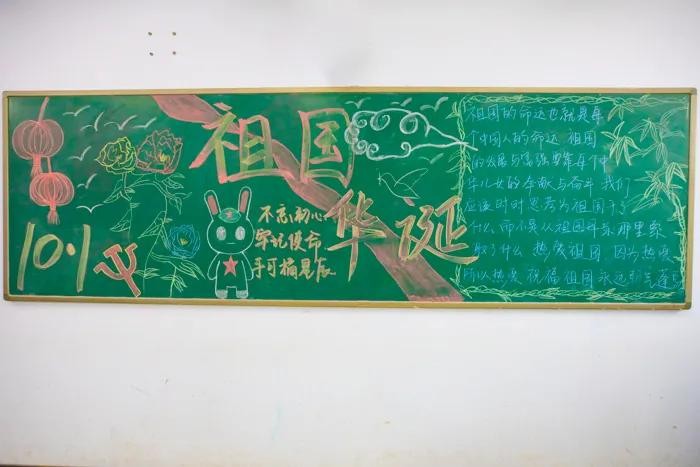 祖国
华诞
10.1
不忘初心
牢记使命
手可摘星辰
祖国的命运也就是每
个中国人的命运 祖国
的发展与富强要靠每个中
华儿女的奉献与奋斗 我们
应该时时思考为祖国干了
什么 而不是从祖国母亲那里索
取了什么 热爱祖国 因为热爱
所以热爱 祝福祖国 永远